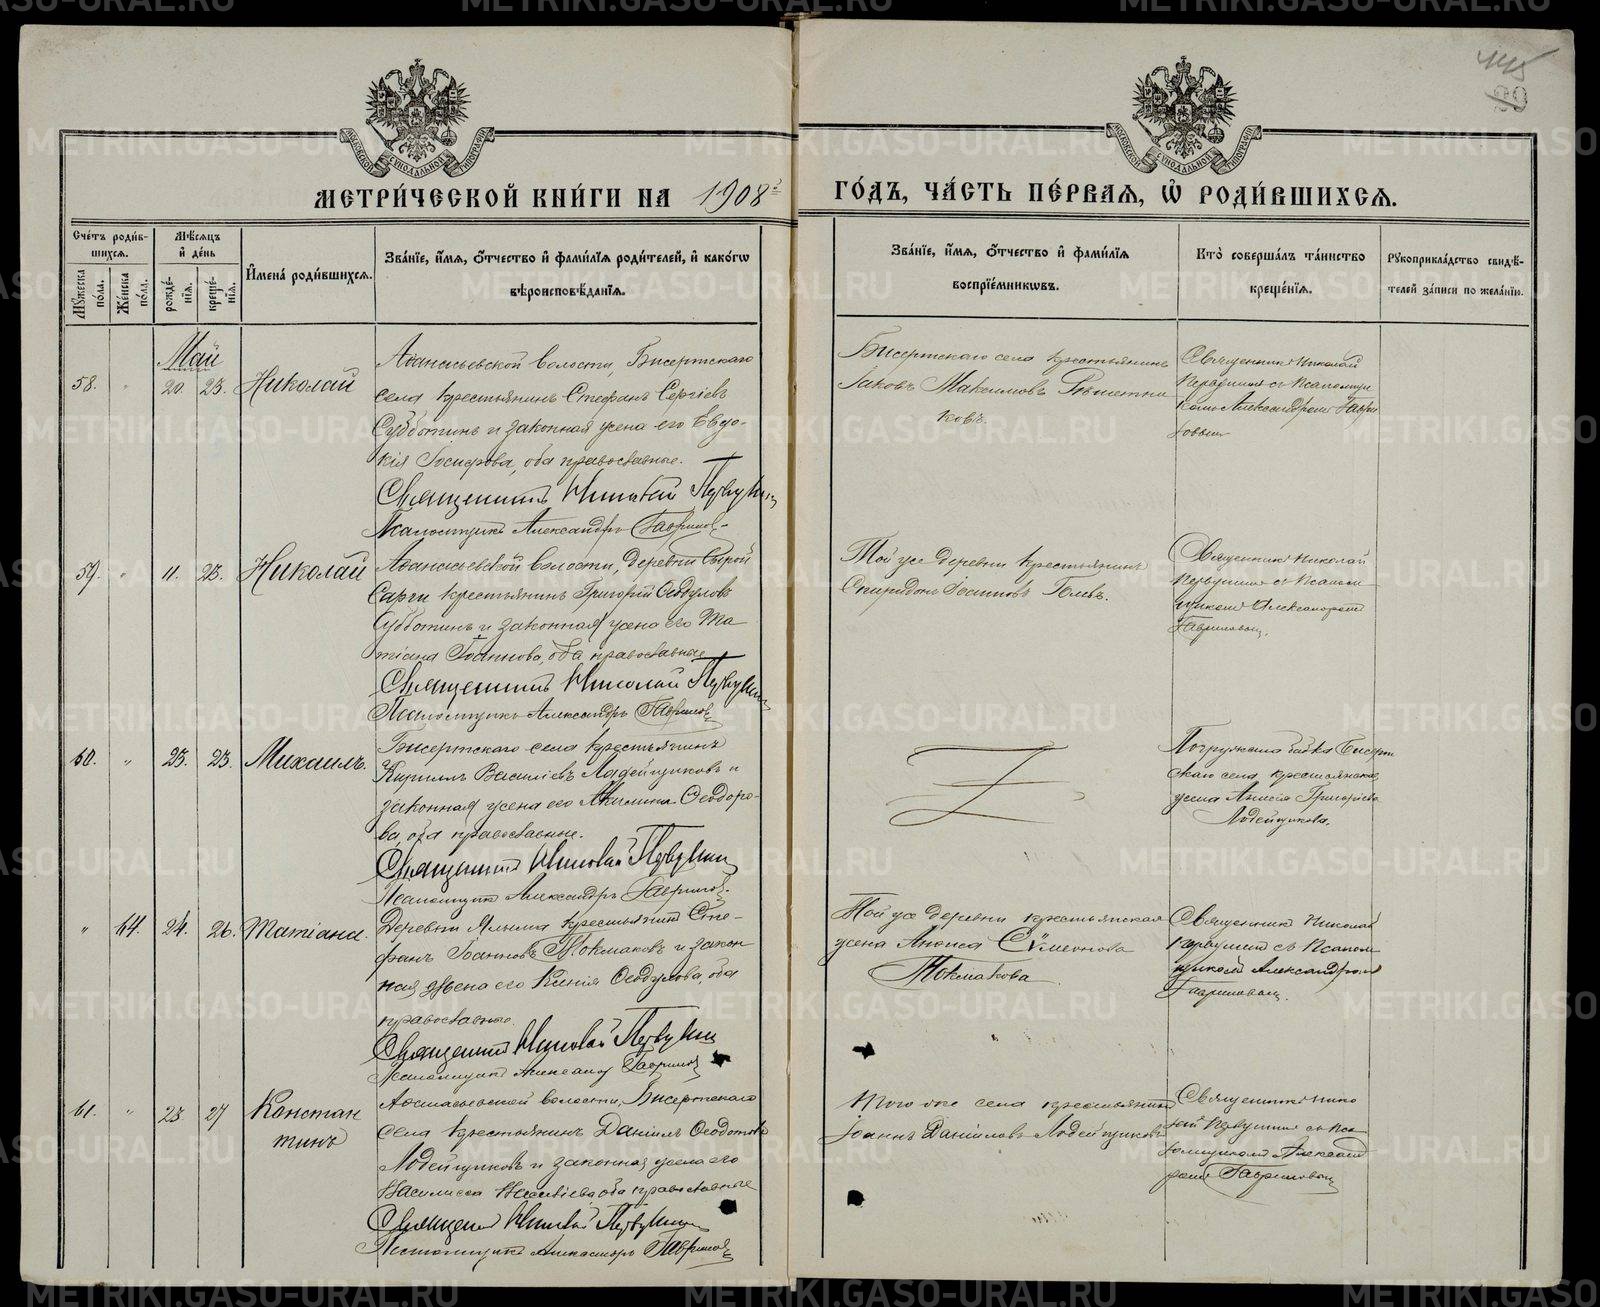 МЕТРИ́ЧЕСКОЙ КНИ́ГИ НА 1908й
ГО́ДЪ, ЧА́СТЬ ПЕ́РВАЯ, Ѡ РОДИ́ВШИХСЯ.
445
Сче́тъ роди́вшихся.
Му́жеска по́ла.
Же́нска по́ла.
Мѣ́сяцъ и҆ де́нь
рожде́нїя.
креще́нїя.
И҆мена̀ роди́вшихся.
Зва́нїе, и҆́мя, ѻ҆́тчество и҆ фами́лїя роди́телей, и҆ како́гѡ
вѣроисповѣ́данїя.
Зва́нїе, и҆́мя, ѻ҆́тчество и҆ фами́лїя
воспрїе́мникѡвъ.
Кто̀ соверша́лъ та́инство
креще́нїя.
Рꙋкоприкла́дство свидѣ́-
телей за́писи по жела́нїю.
Май
58. " 20. 23. Николай
Аѳанасьевской волости, Бисертскаго
села крестьянинъ Стефанъ Сергіевъ
Субботинъ и законная жена его Евдо-
кія Іосифова, оба православные.
Священникъ Николай Первушин
Псаломщикъ Александръ Гаврилов
Бисертскаго села крестьянинъ
Іаковъ Максимовъ Рѣшетни
ковъ.
Священникъ Николай
Первушинъ съ Псаломщи
комъ Александромъ Гаври
ловым
59. " 11. 23. Николай
Аѳанасьевской волости, деревни Сырой
Сарги крестьянинъ Григорій Ѳеодуловъ
Субботинъ и законная жена его Та
тіана Іоаннова, оба православные
Священникъ Николай Первушин
Псаломщикъ Александръ Гаврилов
Той же деревни крестьянинъ
Спиридонъ Іоанновъ
Священникъ Николай
Первушинъ съ Псалом
щикомъ Александромъ
Гавриловым.
60. " 23. 23. Михаилъ.
Бисертскаго села крестьянинъ
Кириллъ Василіевъ Ладейщиковъ и
законная жена его Акилина Ѳеодоро-
ва, оба православные.
Священникъ Николай Первушин
Псаломщикъ Александръ Гаврилов.
Погружала бабка Бисерт
скаго села крестьянская
жена Анисія Григоріева
Ладейщикова.
" 44. 24. 26. Татіана.
Деревни крестьянинъ Сте-
фанъ Іоанновъ Токмаковъ и закон
ная жена его Ксенія Ѳеодулова, оба
православные.
Священникъ Николай Первушин
Псаломщикъ Александръ Гаврилов
Той же деревни крестьянская
жена Анѳиса Сѵмеонова
Токмакова.
Священникъ Николай
Первушинъ съ Псалом
щикомъ Александромъ
Гавриловым.
61. " 23 27 Констан
тинъ
Аѳанасьевской волости, Бисертскаго
села крестьянинъ Даніилъ Ѳеодотовъ
Ладейщиковъ и законная жена его
Василисса оба православные
Священникъ Николай Первушин
Псаломщикъ Александръ Гаврилов
Того же села крестьянинъ
Іоаннъ Даніиловъ Ладейщиковъ
Священникъ Нико
лай Первушинъ съ Пса
ломщикомъ Александ
ромъ Гавриловым
METRIKI.GASO-URAL.RU